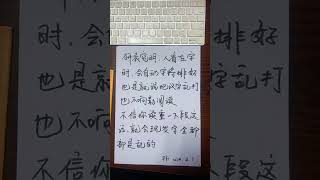 研表究明,人看在字
时,会自动字将排好
也是就说把汉字乱打
也不响影阅读
不信你读重一下段这
话,就会现发字全部
都是乱的